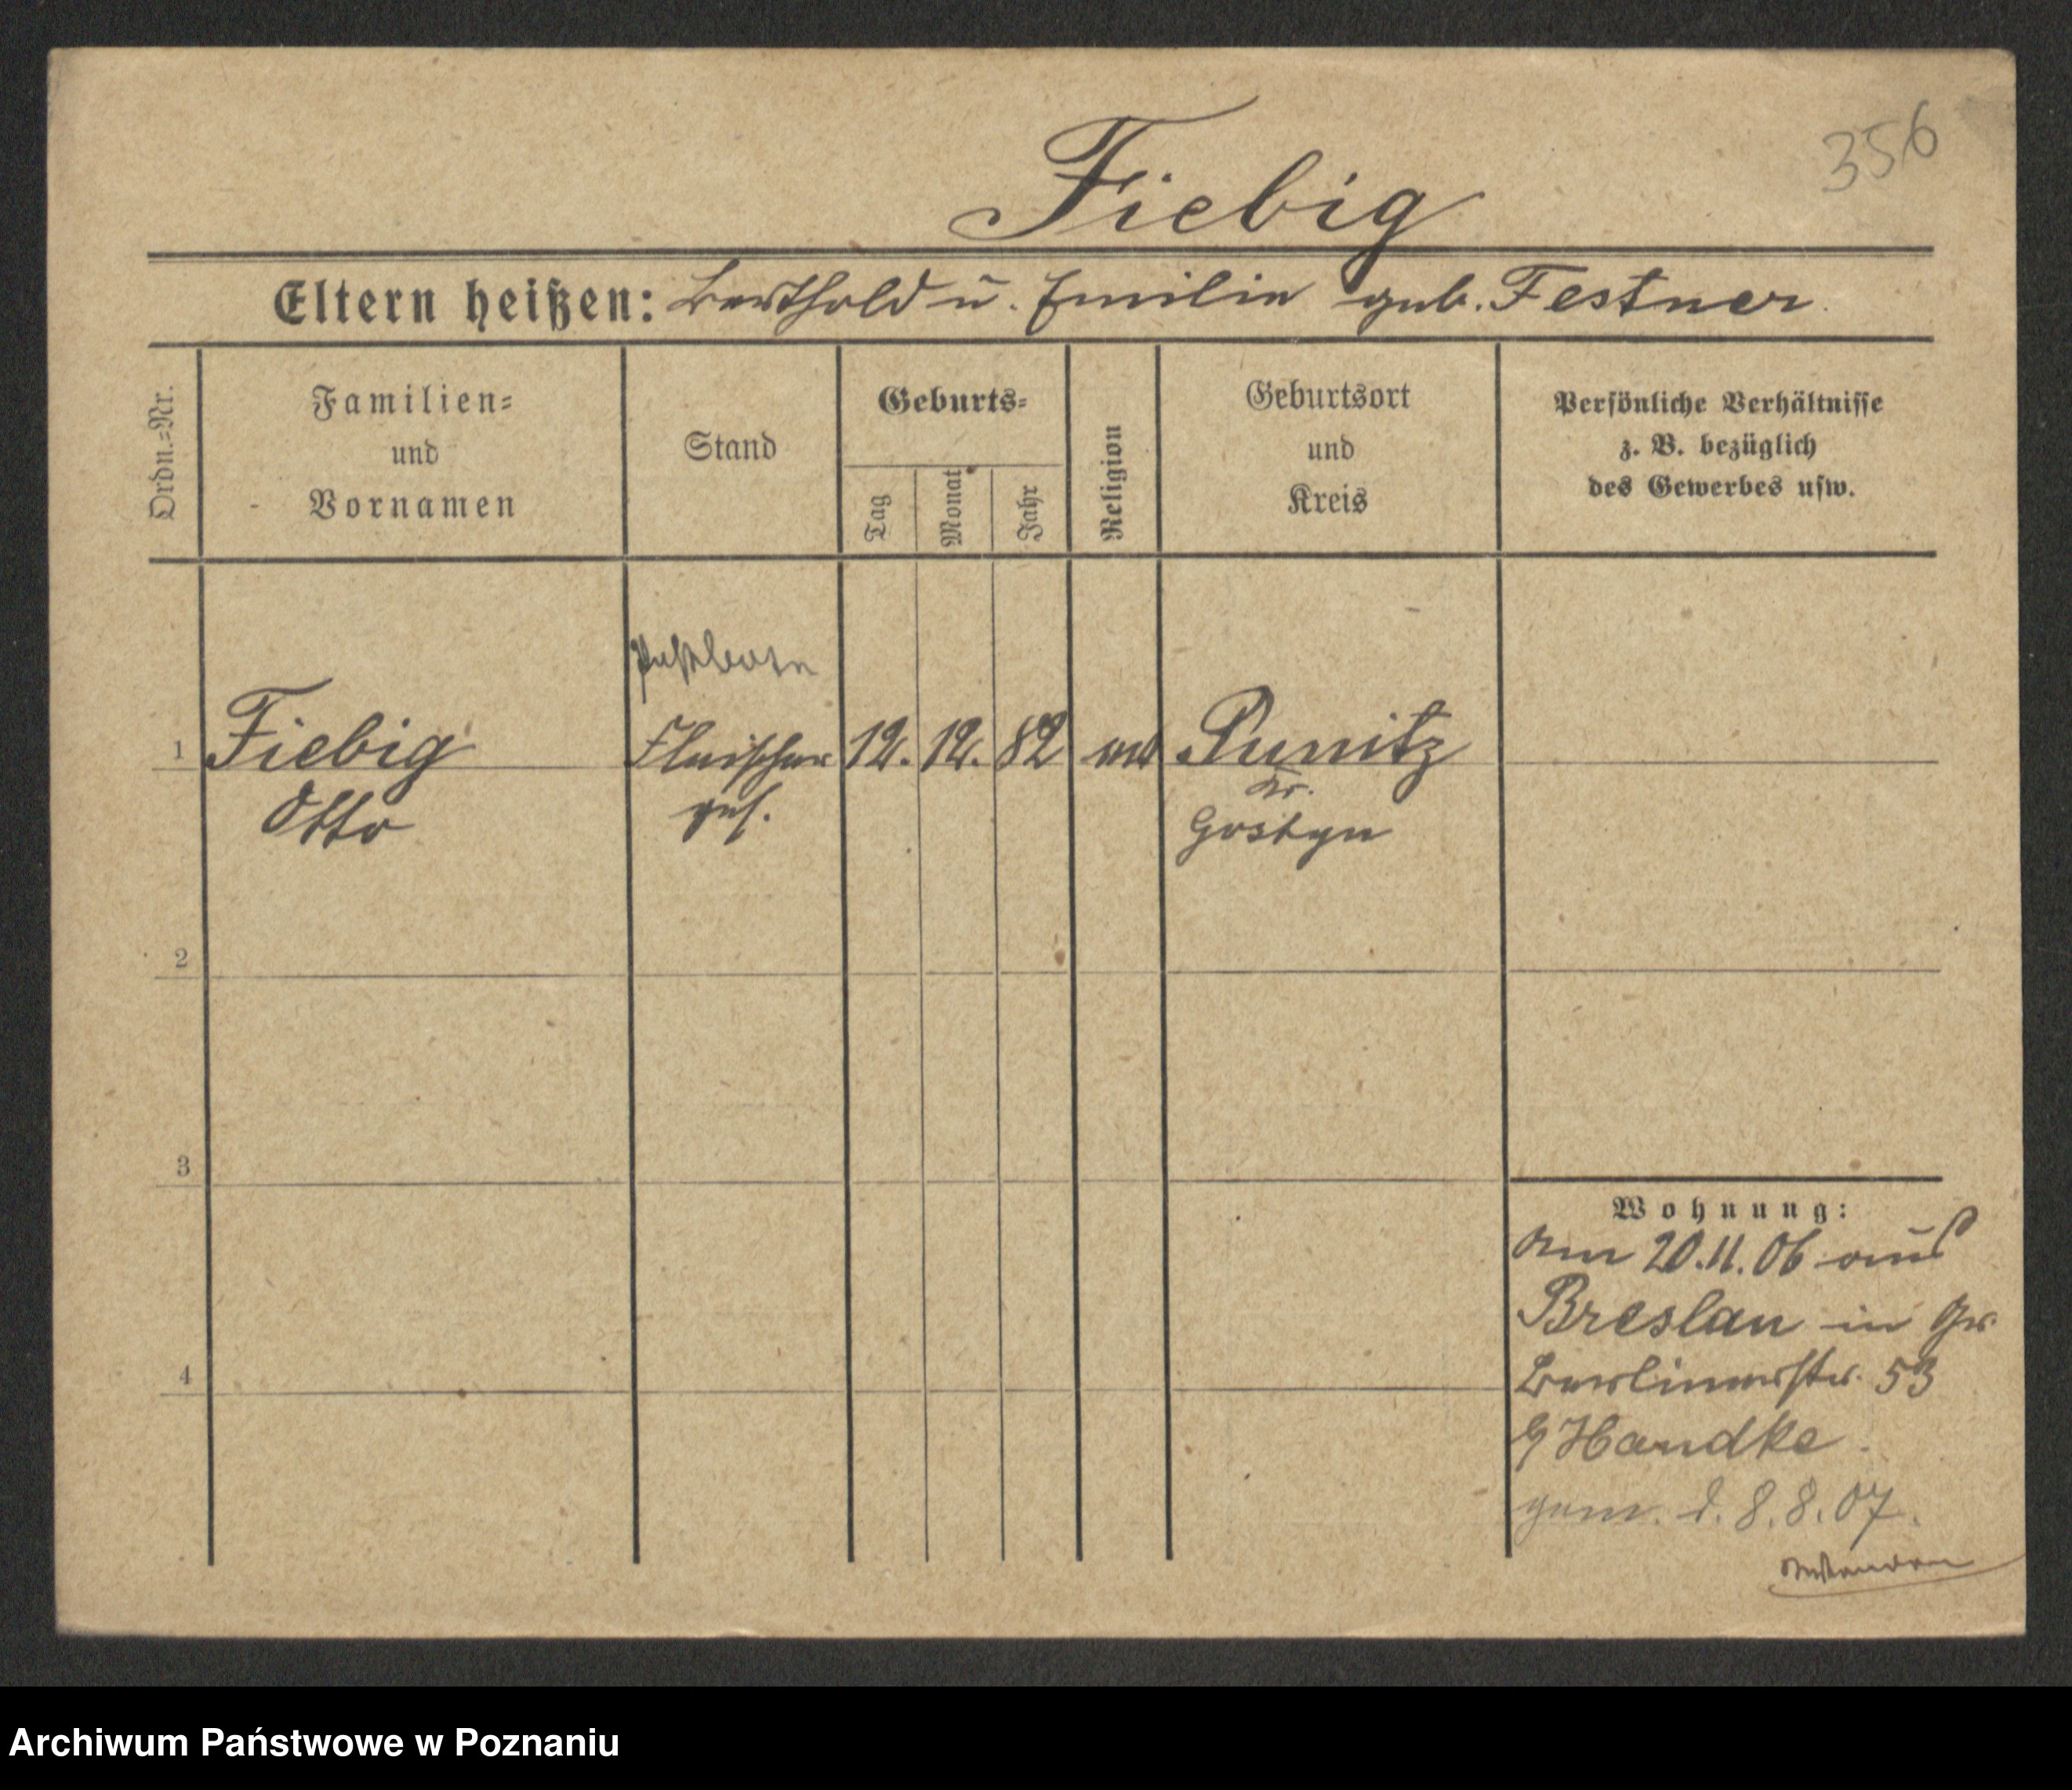 356
Fiebig
Eltern heißen: Berthold u. Emilie geb. Festner.
Ordn.=Nr.
Familien=
und
Vornamen
Stand
Geburts=
Tag
Monat
Jahr
Religion
Geburtsort
und
Kreis
Persönliche Verhältnisse
z. B. bezüglich
des Gewerbes usw.
Postbote
1 Fiebig Fleischer 12. 12. 82 ev Punitz
Otto ges. Kr.
Gostyn
2
3
4
Wohnung:
Am 20.11.06 aus
Breslau in Gr.
Berlinerstr. 53
Handke.
gem. d. 8.8.07.
Archiwum Państwowe w Poznaniu